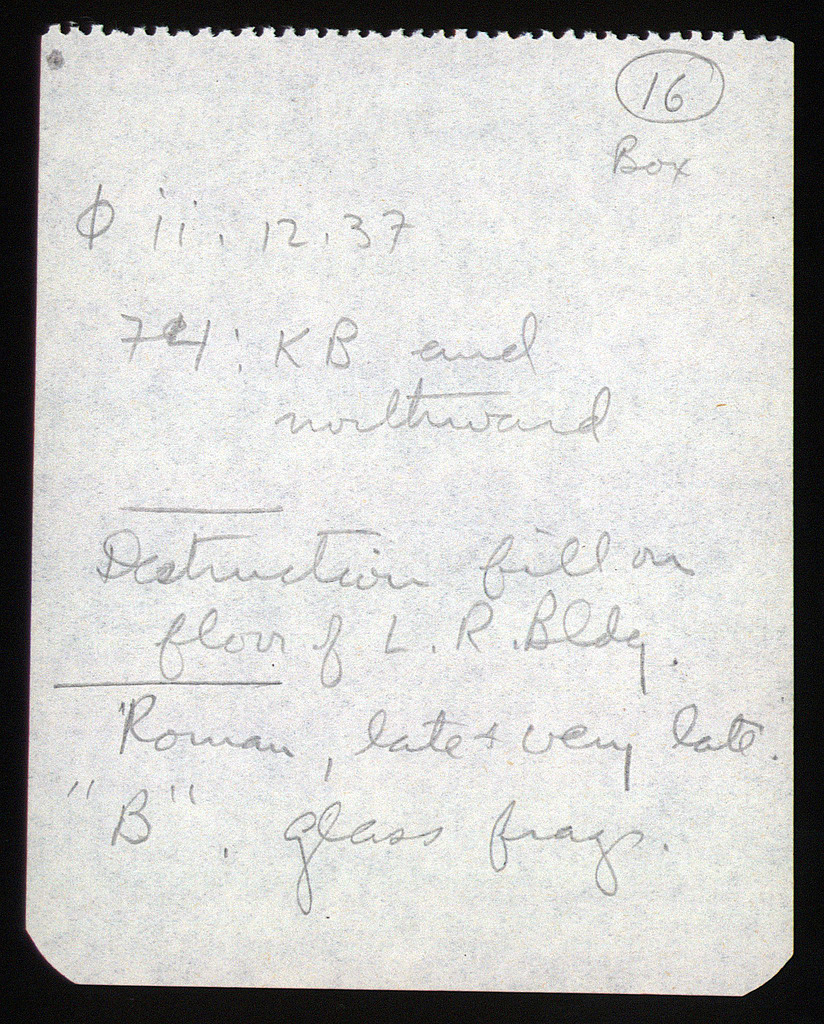 16
Box
Φ ii. 12. 37
74: KB and
northward
Destruction fill on
floor of L. R. Bldg.
Roman, late + very late.
"B". glass frags.